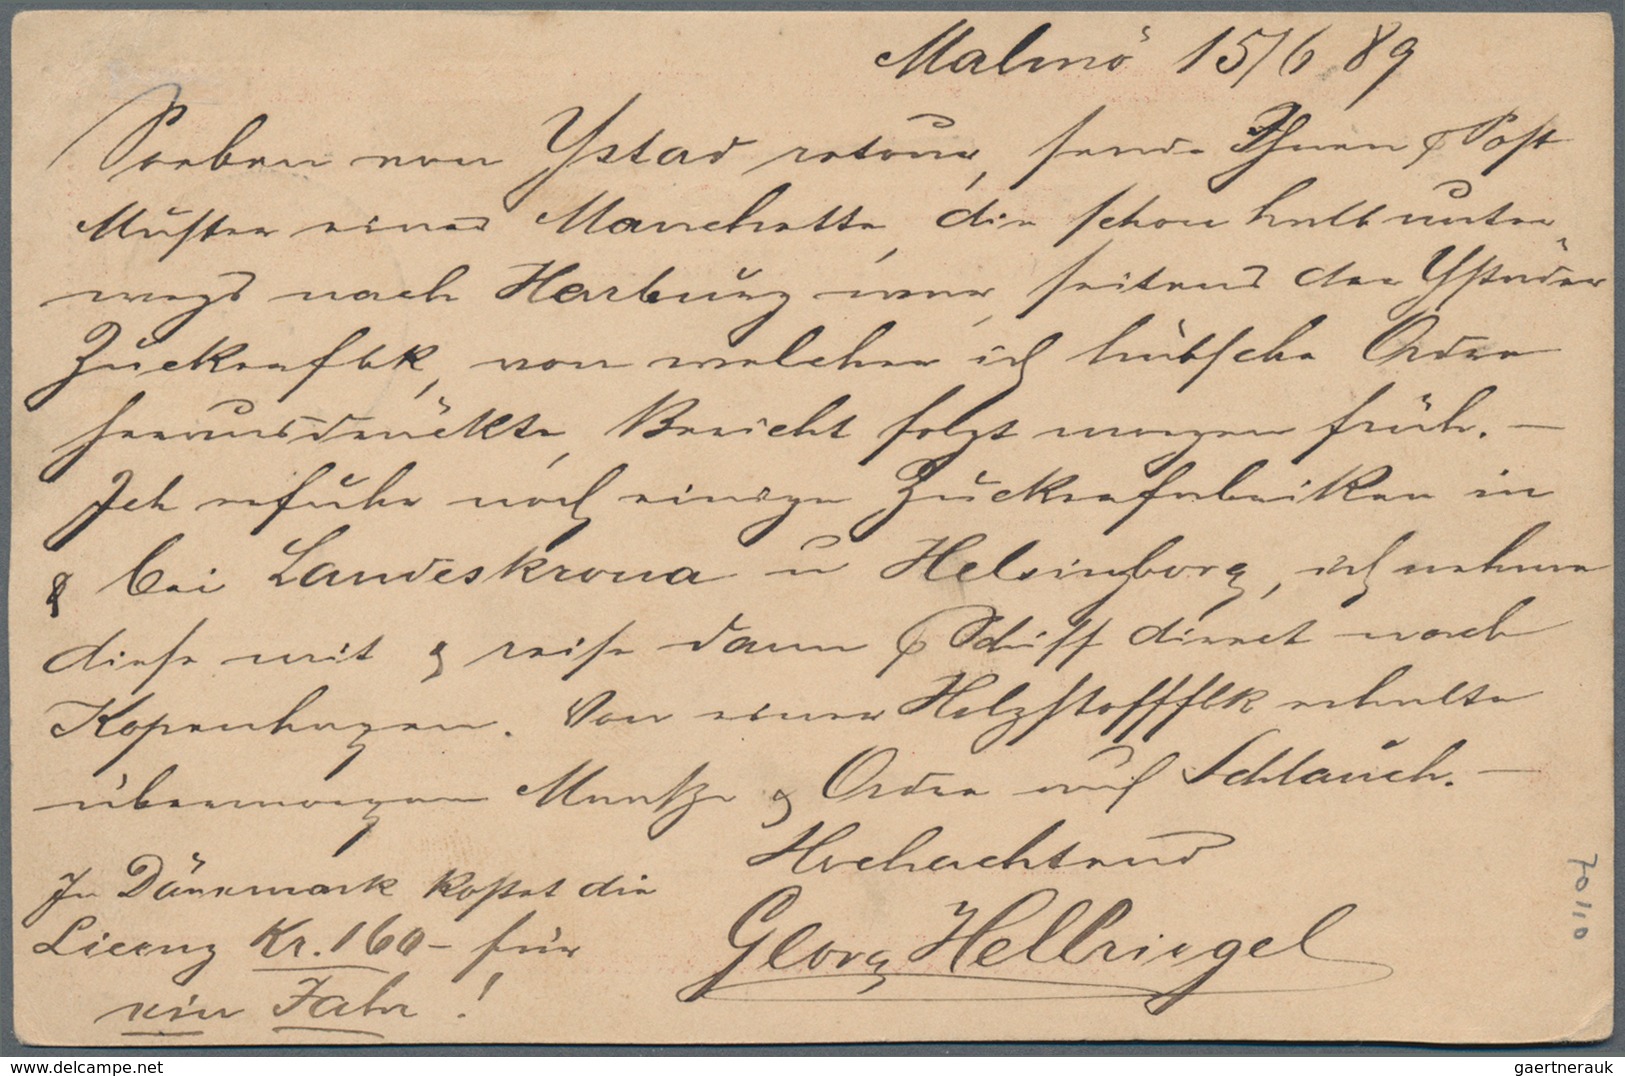 Malmö 15/6 89
Soeben von Ystad retour, sende Ihnen p Post
Muster einer Manchette, die schon halb unter-
wegs nach Harburg war, seitens der Ystader
Zuckerfbk, von welcher ich hübsche Ordre
herausdrückte, Bericht folgt morgen früh. –
Ich erfuhr noch einige Zuckerfabriken in
& bei Landeskrona u Helsingborg, ich nehme
diese mit & reise dann p Schiff direct nach
Kopenhagen. Von einer Holzstofffbk erhalte
übermorgen Ordre auf Schlauch. –
Hochachtend
Georg Hellriegel
In Dänemark kostet die
Licenz Kr. 160– für
ein Jahr!
70110
www.delcampe.net
gaertnerauk